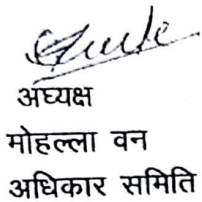 अध्यक्ष
मोहल्ला वन
अधिकार समिति